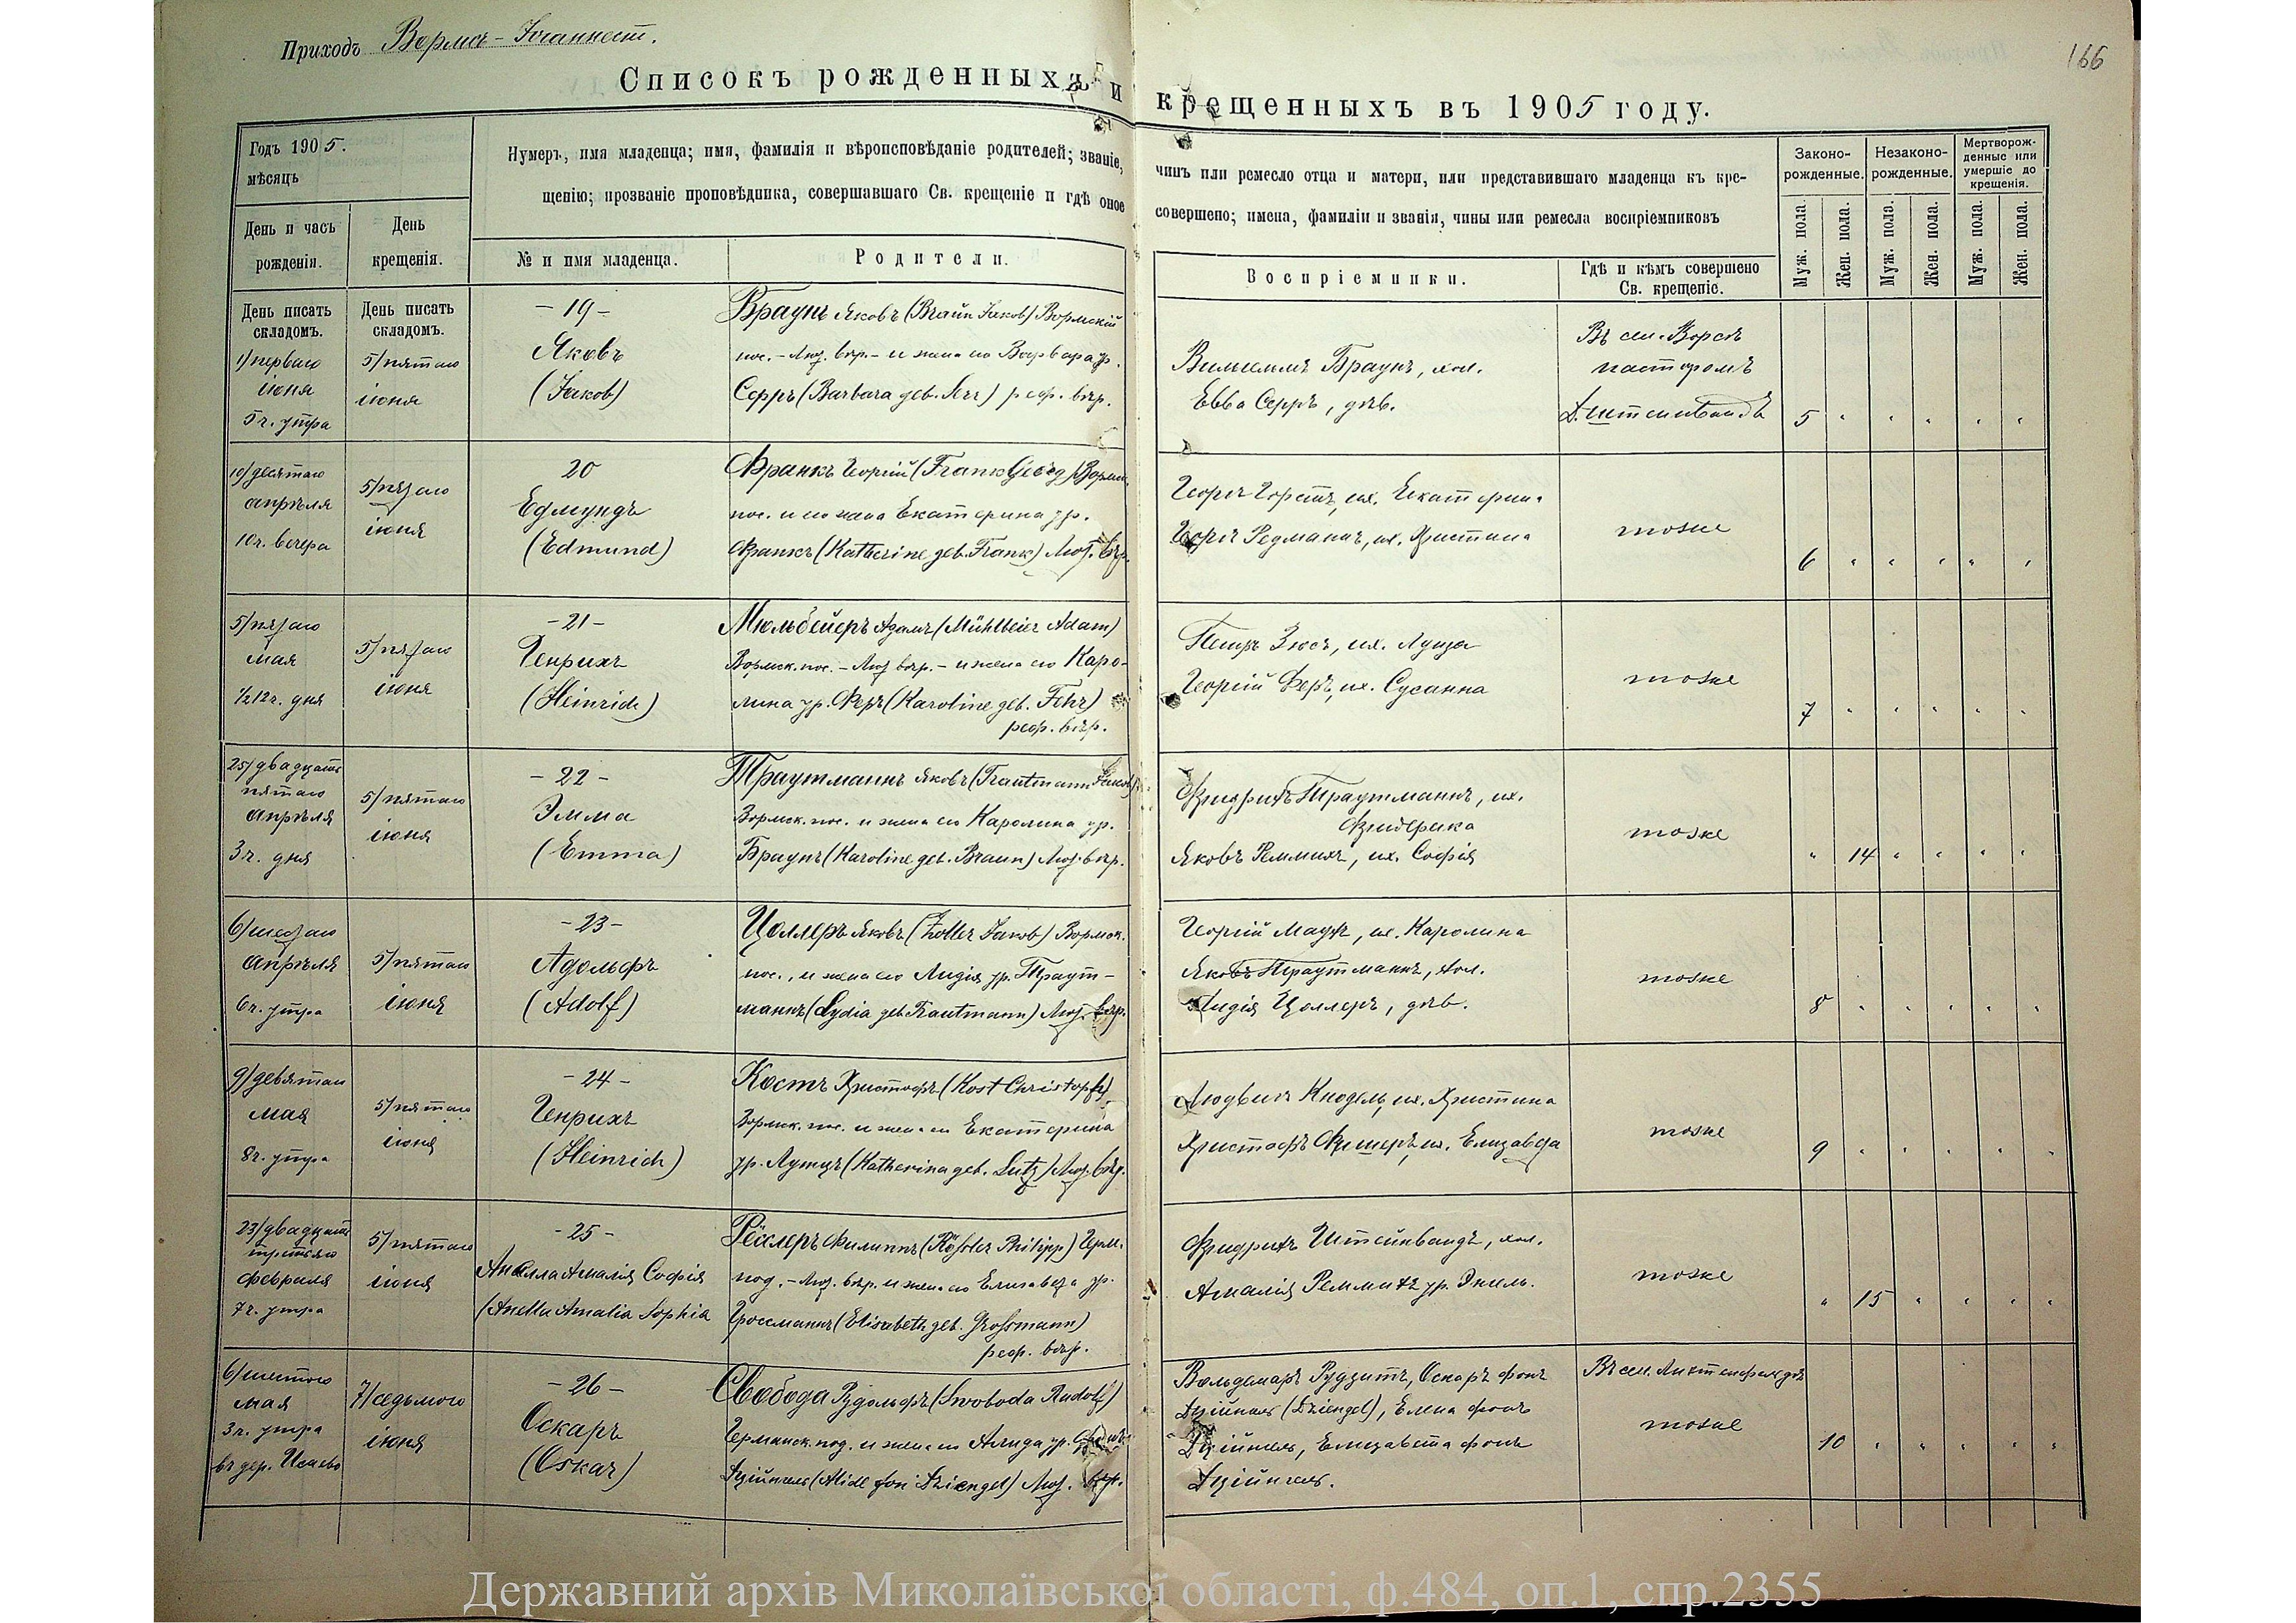 Приходъ Вормсъ-Іоганнест.
166
Списокъ рожденныхъ и крещенныхъ въ 1905 году.
Годъ 1905.
мѣсяцъ
Нумеръ, имя младенца; имя, фамилія и вѣроисповѣданіе родителей; званіе, чинъ или ремесло отца и матери, или представившаго младенца къ кре-
щенію; прозваніе проповѣдника, совершавшаго Св. крещеніе и гдѣ оное совершено; имена, фамиліи и званія, чины или ремесла воспріемниковъ
Законо-
рожденные.
Незаконо-
рожденные.
Мертворож-
денные или
умершіе до
крещенія.
День и часъ
рожденія.
День
крещенія.
№ и имя младенца.
Родители.
Воспріемники.
Гдѣ и кѣмъ совершено
Св. крещеніе.
Муж. пола.
Жен. пола.
Муж. пола.
Жен. пола.
Муж. пола.
Жен. пола.
День писать
складомъ.
1/перваго
іюня
5 ч. утра
День писать
складомъ.
5/пятаго
іюня
- 19 -
Яковъ
(Jakob)
Браунъ Яковъ (Braun Jakob) Вормскій
пос. - Лют. вѣр. - и жена его Варвара ур.
Серръ (Barbara geb. Serr) реф. вѣр.
Вильгельмъ Браунъ, хол.
Евва Серръ, дѣв.
Въ сел. Вормсъ
пасторомъ
Д. Штейнвандъ
5
10/десятаго
апрѣля
10 ч. вечера
5/пятаго
іюня
20
Едмундъ
(Edmund)
Франкъ Георгій (Frank Georg) Вормск.
пос. и его жена Екатерина ур.
Франкъ (Katherine geb. Frank) Лют. вѣр.
Георгъ Горстъ, их. Екатерина
Георгъ Редманнъ, их. Христина
тоже
6
5/пятаго
мая
1/2 12 ч. дня
5/пятаго
іюня
- 21 -
Генрихъ
(Heinrich)
Мюльбейеръ Адамъ (Mühlbeier Adam)
Вормск. пос. - Лют. вѣр. - и жена его Каро-
лина ур. Феръ (Karoline geb. Fehr)
реф. вѣр.
Петръ Зюсъ, их. Луиза
Георгій Феръ, их. Сусанна
тоже
7
25/двадцать
пятаго
апрѣля
3 ч. дня
5/пятаго
іюня
- 22 -
Эмма
(Emma)
Траутманнъ Яковъ (Trautmann Jakob)
Вормск. пос. и жена его Каролина ур.
Браунъ (Karoline geb. Braun) Лют. вѣр.
Фридрихъ Траутманнъ, их.
Фридерика
Яковъ Реммихъ, их. Софія
тоже
14
6/шестаго
апрѣля
6 ч. утра
5/пятаго
іюня
- 23 -
Адольфъ
(Adolf)
Цоллеръ Яковъ (Zoller Jakob) Вормск.
пос., и жена его Лидія ур. Траут-
маннъ (Lydia geb. Trautmann) Лют. вѣр.
Георгій Маутъ, их. Каролина
Яковъ Траутманнъ, хол.
Лидія Цоллеръ, дѣв.
тоже
8
9/девятаго
мая
8 ч. утра
5/пятаго
іюня
- 24 -
Генрихъ
(Heinrich)
Костъ Христофъ (Kost Christoph)
Вормск. пос. и жена его Екатерина
ур. Лутцъ (Katherina geb. Lutz) Лют. вѣр.
Людвигъ Кнодель, их. Христина
Христофъ Фишеръ, их. Елизавета
тоже
9
23/двадцать
третьяго
февраля
7 ч. утра
5/пятаго
іюня
- 25 -
Анелла Амалія Софія
(Anella Amalia Sophia
Рёсслеръ Филиппъ (Rößler Philipp) Герм.
под. - Лют. вѣр. и жена его Елизавета ур.
Гроссманнъ (Elisabeth geb. Großmann)
реф. вѣр.
Фридрихъ Штейнвандъ, хол.
Амалія Реммихъ ур. Энгель.
тоже
15
6/шестого
мая
3 ч. утра
въ дер. Исаево
7/седьмого
іюня
- 26 -
Оскаръ
(Oskar)
Свобода Рудольфъ (Swoboda Rudolf)
Германск. под. и жена его Алида ур. фонъ
Дзійнгель (Alide fon Dziengel) Лют. вѣр.
Вольдемаръ Рудзитъ, Оскаръ фонъ
Дзійнгель (Dziengel), Елена фонъ
Дзійнгель, Елизавета фонъ
Дзійнгель.
Въ сел. Лихтенфельдъ
тоже
10
Державний архів Миколаївської області, ф.484, оп.1, спр.2355